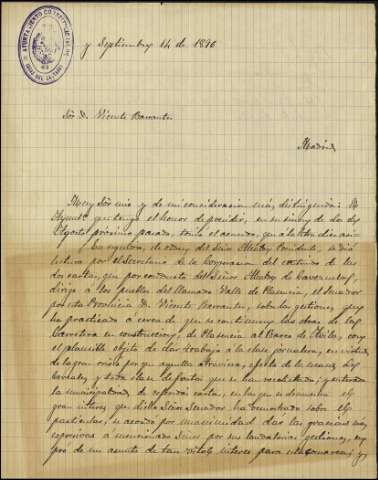 AYUNTAMIENTO CONSTITUCIONAL
y Septiembre 14 de 1896
Sor D. Vicente Barrantes
Madrid
Muy Sor mio y de mi consideración más distinguida: El
Ayunto que tengo el honor de presidir, en sesion de
Agosto próximo pasado, tomó el acuerdo, que á la letra dice así:
En seguida, de orden del Señor Alcalde Presidente, se dió
lectura por el Secretario de la Corporacion del contenido de las
dos cartas, que por conducto del Señor Alcalde de Cabezuela,
dirige á los pueblos del llamado Valle de Plasencia, el Senador
por esta Provincia D. Vicente Barrantes, sobre las gestiones que
ha practicado á cerca de que se continuen las obras de la
Carretera en construccion, de Plasencia al Barco de Avila, con
el plausible objeto de dar trabajo á la clase jornalera, en virtud
de la gran crisis por que aquella atraviesa, efecto de la escasez de
Cereales, y toda clase de frutos que se han recolectado; y enterada
la municipalidad de referidas cartas, en las que se demuestra el
gran interes que dicho Señor Senador ha demostrado sobre el
particular, se acordó por unanimidad dar las gracias más
expresivas á mencionado Señor por sus laudatorias gestiones, en
pró de un asunto de tan vital interes para esta comarca; y